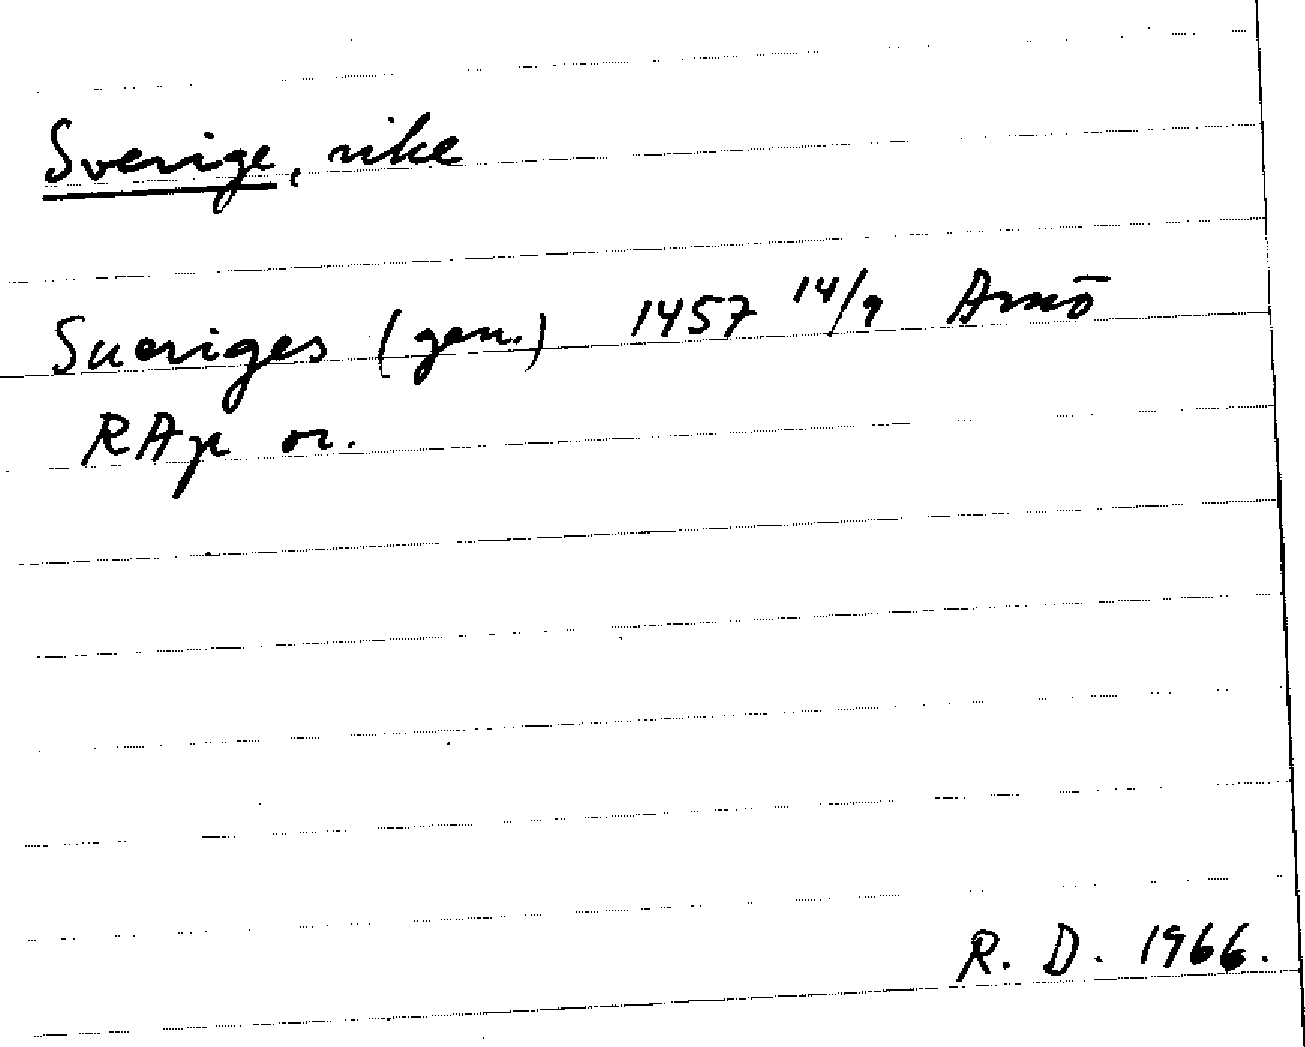 Sverige, rike
Sueriges (gen.) 1457 14/9 Arnö
RAp or.
R. D. 1966.